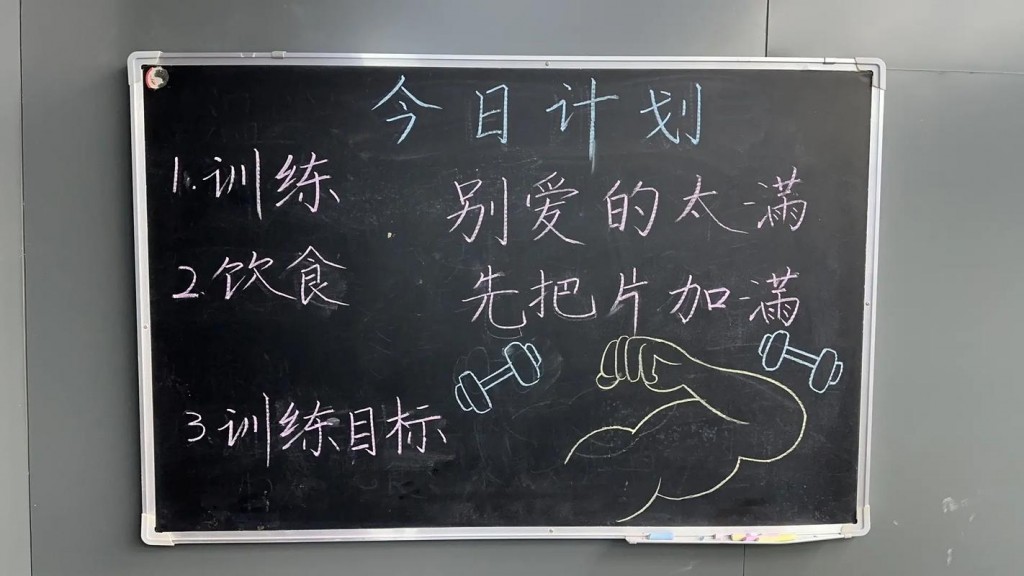 今日计划
1.训练
别爱的太满
2.饮食
先把片加满
3.训练目标